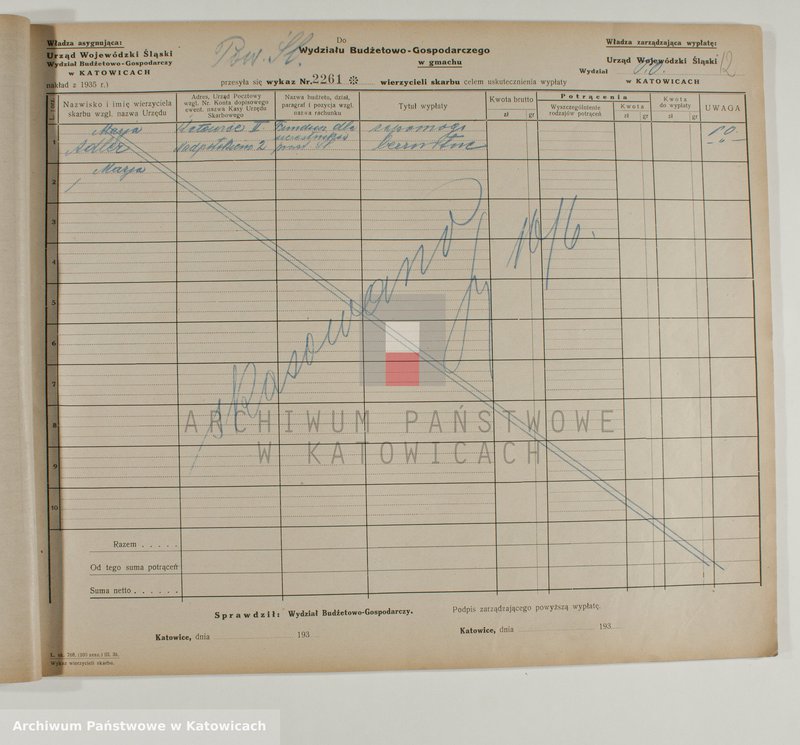 Władza asygnująca:
Urząd Wojewódzki Śląski
Wydział Budżetowo-Gospodarczy
w KATOWICACH
nakład z 1935 r.)
Pow. Śl.
Do
Wydziału Budżetowo-Gospodarczego
w gmachu
przesyła się wykaz Nr. 2261 ✻ wierzycieli skarbu celem uskutecznienia wypłaty
Władza zarządzająca wypłatę:
Urząd Wojewódzki Śląski
Wydział 12
w KATOWICACH
L. porz.
Nazwisko i imię wierzyciela
skarbu wzgl. nazwa Urzędu
Adres, Urząd Pocztowy
wzgl. Nr. Konta dopisowego
ewent. nazwa Kasy Urzędu
Skarbowego
Nazwa budżetu, dział,
paragraf i pozycja wzgl.
nazwa rachunku
Tytuł wypłaty
Kwota brutto
zł gr
Potrącenia
Wyszczególnienie
rodzajów potrąceń
Kwota
zł gr
Kwota
do wypłaty
zł gr
UWAGA
1
Marja
Adler
Katowice II
2
Fundusz dla
zapomogi
2
Marja
3
4
5
6
7
8
9
10
skasowano
10/6.
Razem . . . . .
Od tego suma potrąceń
Suma netto . . . . . .
Sprawdził: Wydział Budżetowo-Gospodarczy.
Katowice, dnia 193
Podpis zarządzającego powyższą wypłatę.
Katowice, dnia 193
Wykaz wierzycieli skarbu.
ARCHIWUM PAŃSTWOWE
W KATOWICACH
Archiwum Państwowe w Katowicach